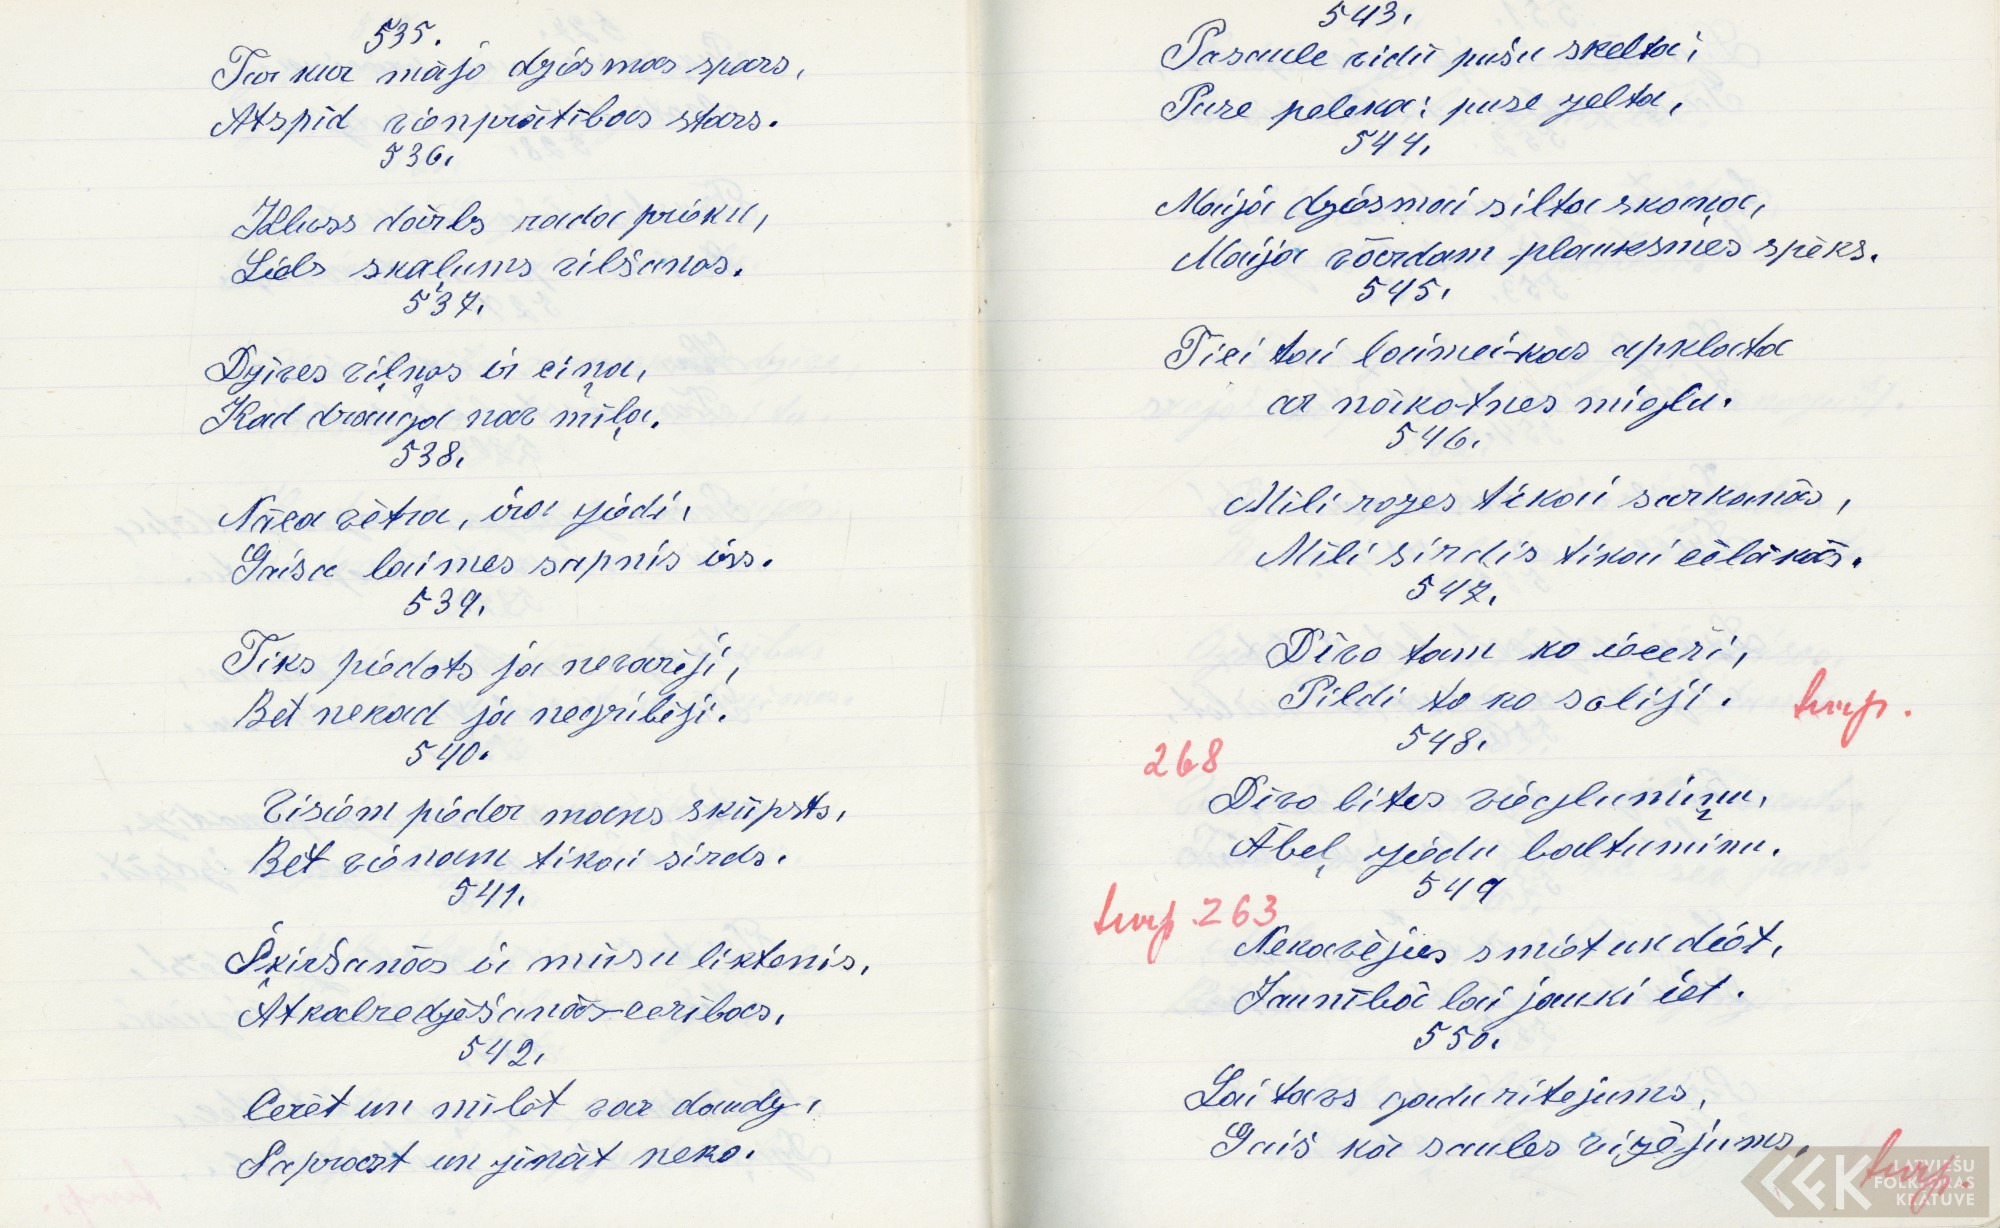 535.
Tur kur mājo dziesmas spars,
Atspīd vienprātības stars.
536.
Kluss darbs rada prieku,
Lieks skaļums vilšanos.
537.
Dzīves viļņos ir cīņa,
Kad drauga nav mīļa.
538.
Nāca vētra, ira ziedi,
Gaisa laimes sapnis īss.
539.
Tiks piedots ja nevarēji,
Bet nekad ja negribēji.
540.
Visiem pieder mans skūpsts,
Bet vienam tikai sirds.
541.
Šķiršanās ir mūsu liktenis,
Atkalredzēšanās-cerības,
542.
Cerēt un mīlēt var daudz,
Saprast un zināt neko.
543.
Pasaule vidū pušu skelta;
Puse peleka; puse zelta,
544.
Māja dziesmai silta skaņa,
Māja vārdam plauksmes spēks.
545.
Tici tai laimei-kas apklāta
ar nākotnes miglu.
546.
Mīli rozes tikai sarkanās,
Mīli sirdis tikai cēlākās.
547.
Dzīvo tam ko ieceri,
Pildi to ko solīji.
turp.
548.
268
Dzīvo bites viegluminu,
Ābeļ ziedu baltuminu.
549
turp. 263
Nekavējies smiet un diet,
Jaunībā lai jauki iet.
550.
Lai tavs gadu ritejums,
Gaiš kā saules vizējums,
turp.
LATVIEŠU
FOLKLORAS
KRĀTUVE